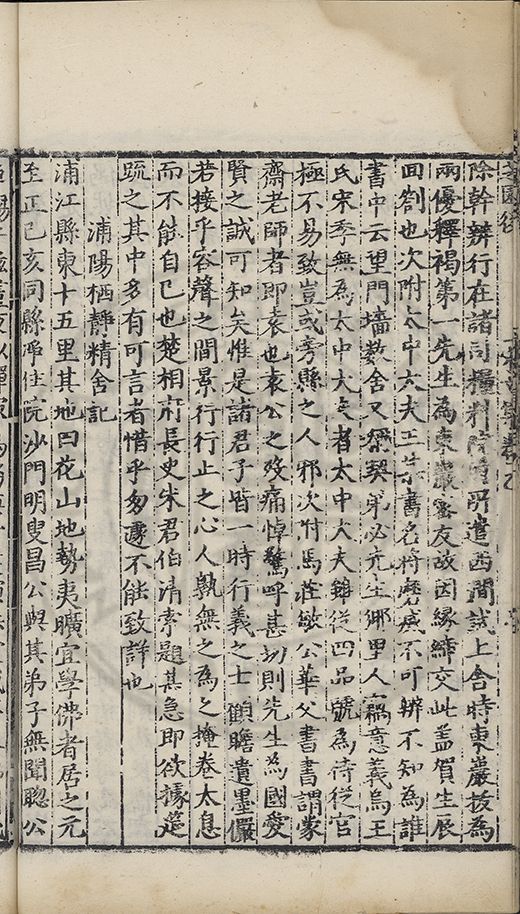 除幹辨行在諸司糧料院時所遣西澗試上舍時東巖拔為
兩優釋褐第一先生為東巖審友故因縁締交此盖賀生辰
回劄也次附太中大夫王書名將磨滅不可辨不知為誰
書中云望門墻數舍又稱契弟必先生鄉里人竊意義烏王
氏宋季無為太中大夫者太中大夫雖從四品號為侍從官
極不易致豈或旁縣之人邪次附馬莊敏公華父書書謂蒙
齋老師者即袁也袁公之歿痛悼驚呼甚切則先生為國愛
賢之誠可知矣惟是諸君子皆一時行義之士顧瞻遺墨儼
若接乎容聲之間景行行止之心人孰無之為之掩卷太息
而不能自已也楚相府長史朱君伯清索題甚急即欲據是
疏之其中多有可言者惜乎匆遽不能致詳也
浦陽栖靜精舍記
浦江縣東十五里其地曰花山地勢夷曠宜學佛者居之元
至正己亥同縣淨住院沙門明叟昌公與其弟子無聞聰公